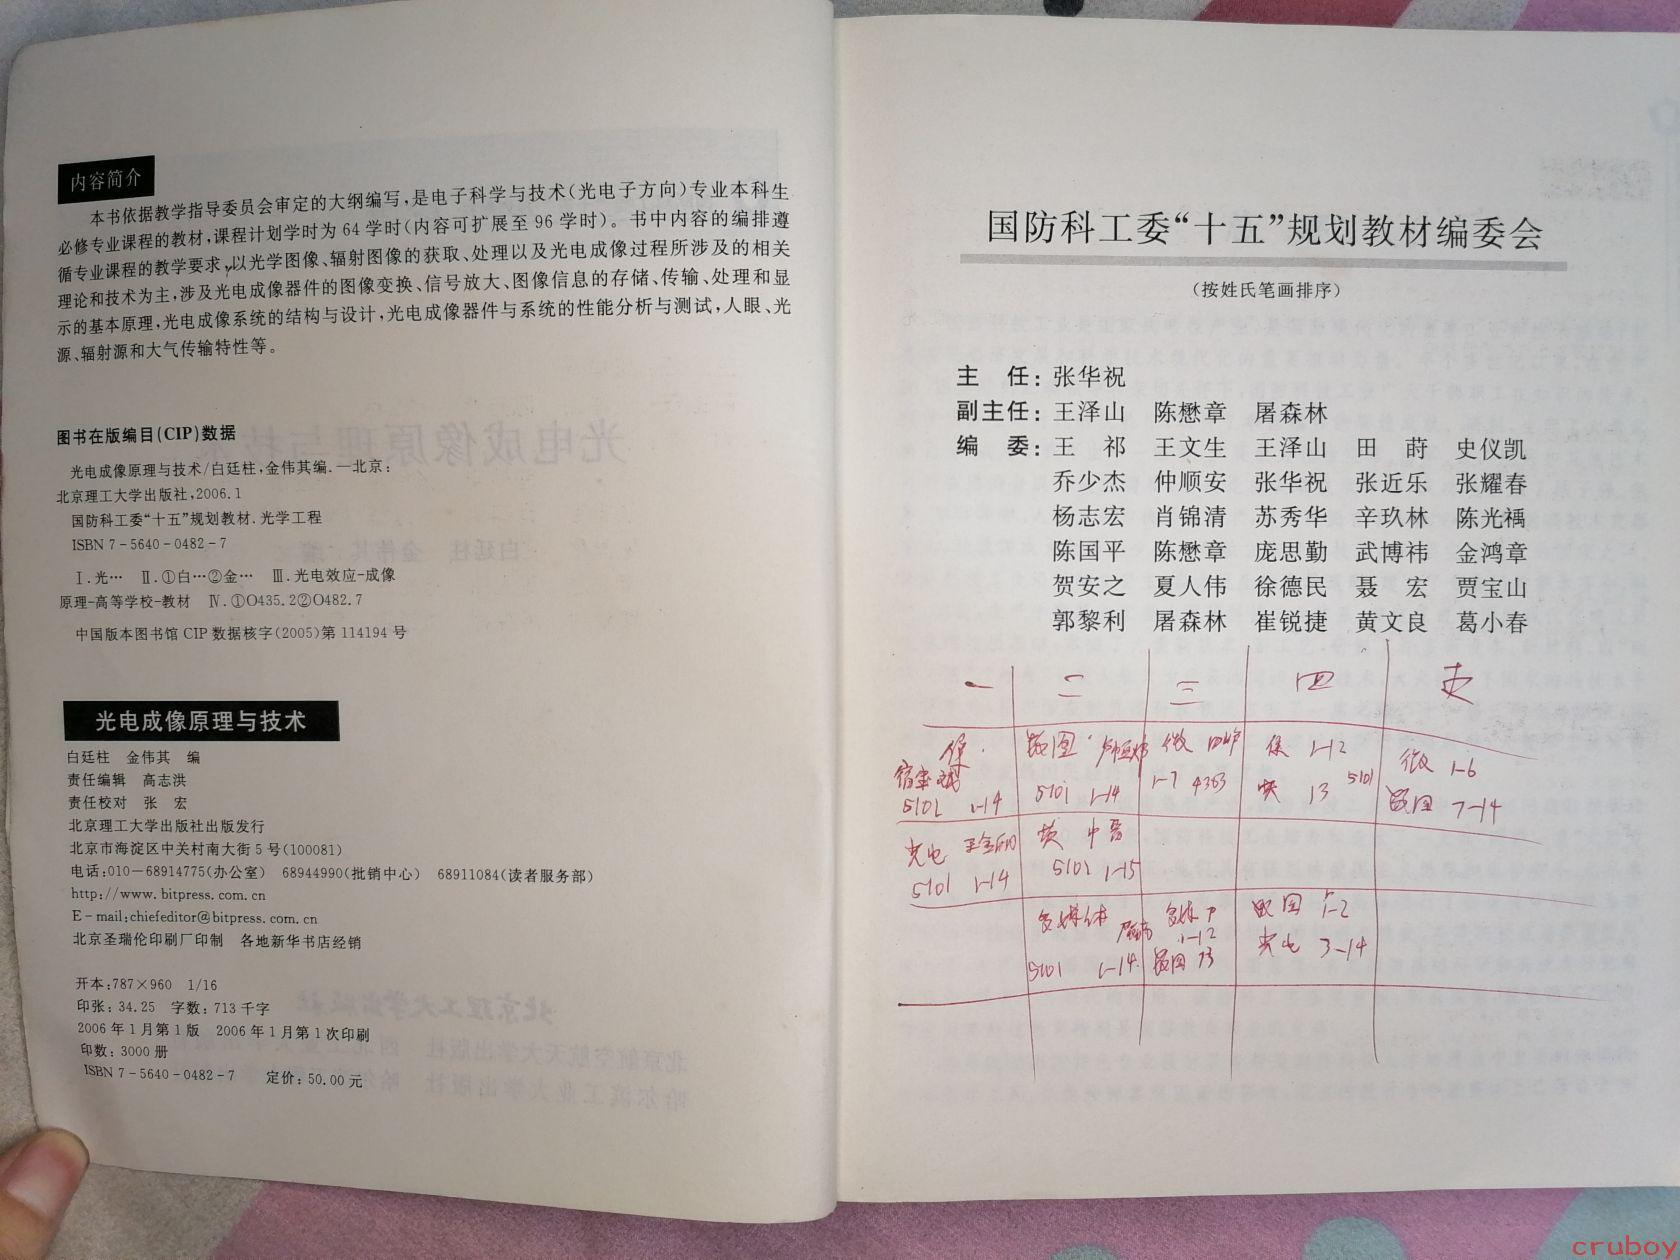 内容简介
本书依据教学指导委员会审定的大纲编写,是电子科学与技术(光电子方向)专业本科生
必修专业课程的教材,课程计划学时为64学时(内容可扩展至96学时)。书中内容的编排遵
循专业课程的教学要求,以光学图像、辐射图像的获取、处理以及光电成像过程所涉及的相关
理论和技术为主,涉及光电成像器件的图像变换、信号放大、图像信息的存储、传输、处理和显
示的基本原理,光电成像系统的结构与设计,光电成像器件与系统的性能分析与测试,人眼、光
源、辐射源和大气传输特性等。
图书在版编目(CIP)数据
光电成像原理与技术/白廷柱,金伟其编.—北京:
北京理工大学出版社,2006.1
国防科工委“十五”规划教材.光学工程
ISBN 7-5640-0482-7
Ⅰ.光… Ⅱ.①白…②金… Ⅲ.光电效应-成像
原理-高等学校-教材 Ⅳ.①O435.2②O482.7
中国版本图书馆CIP数据核字(2005)第114194号
光电成像原理与技术
白廷柱 金伟其 编
责任编辑 高志洪
责任校对 张 宏
北京理工大学出版社出版发行
北京市海淀区中关村南大街5号(100081)
电话:010-68914775(办公室) 68944990(批销中心) 68911084(读者服务部)
http://www.bitpress.com.cn
E-mail:chiefeditor@bitpress.com.cn
北京圣瑞伦印刷厂印制 各地新华书店经销
开本:787×960 1/16
印张:34.25 字数:713千字
2006年1月第1版 2006年1月第1次印刷
印数:3000册
ISBN 7-5640-0482-7 定价:50.00元
国防科工委“十五”规划教材编委会
(按姓氏笔画排序)
主 任:张华祝
副主任:王泽山 陈懋章 屠森林
编 委:王 祁 王文生 王泽山 田 莳 史仪凯
乔少杰 仲顺安 张华祝 张近乐 张耀春
杨志宏 肖锦清 苏秀华 辛玖林 陈光禹
陈国平 陈懋章 庞思勤 武博祎 金鸿章
贺安之 夏人伟 徐德民 聂 宏 贾宝山
郭黎利 屠森林 崔锐捷 黄文良 葛小春
一 二 三 四
微 1-12
1-7 4363 13 5101 微 1-6
5102 1-14 5101 1-14 7-14
光电
5101 1-14 5102 1-15
多媒体 1-2
1-12 光电 3-14
5101 1-14 13
cruboy